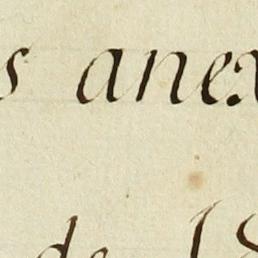 s anex
de 18